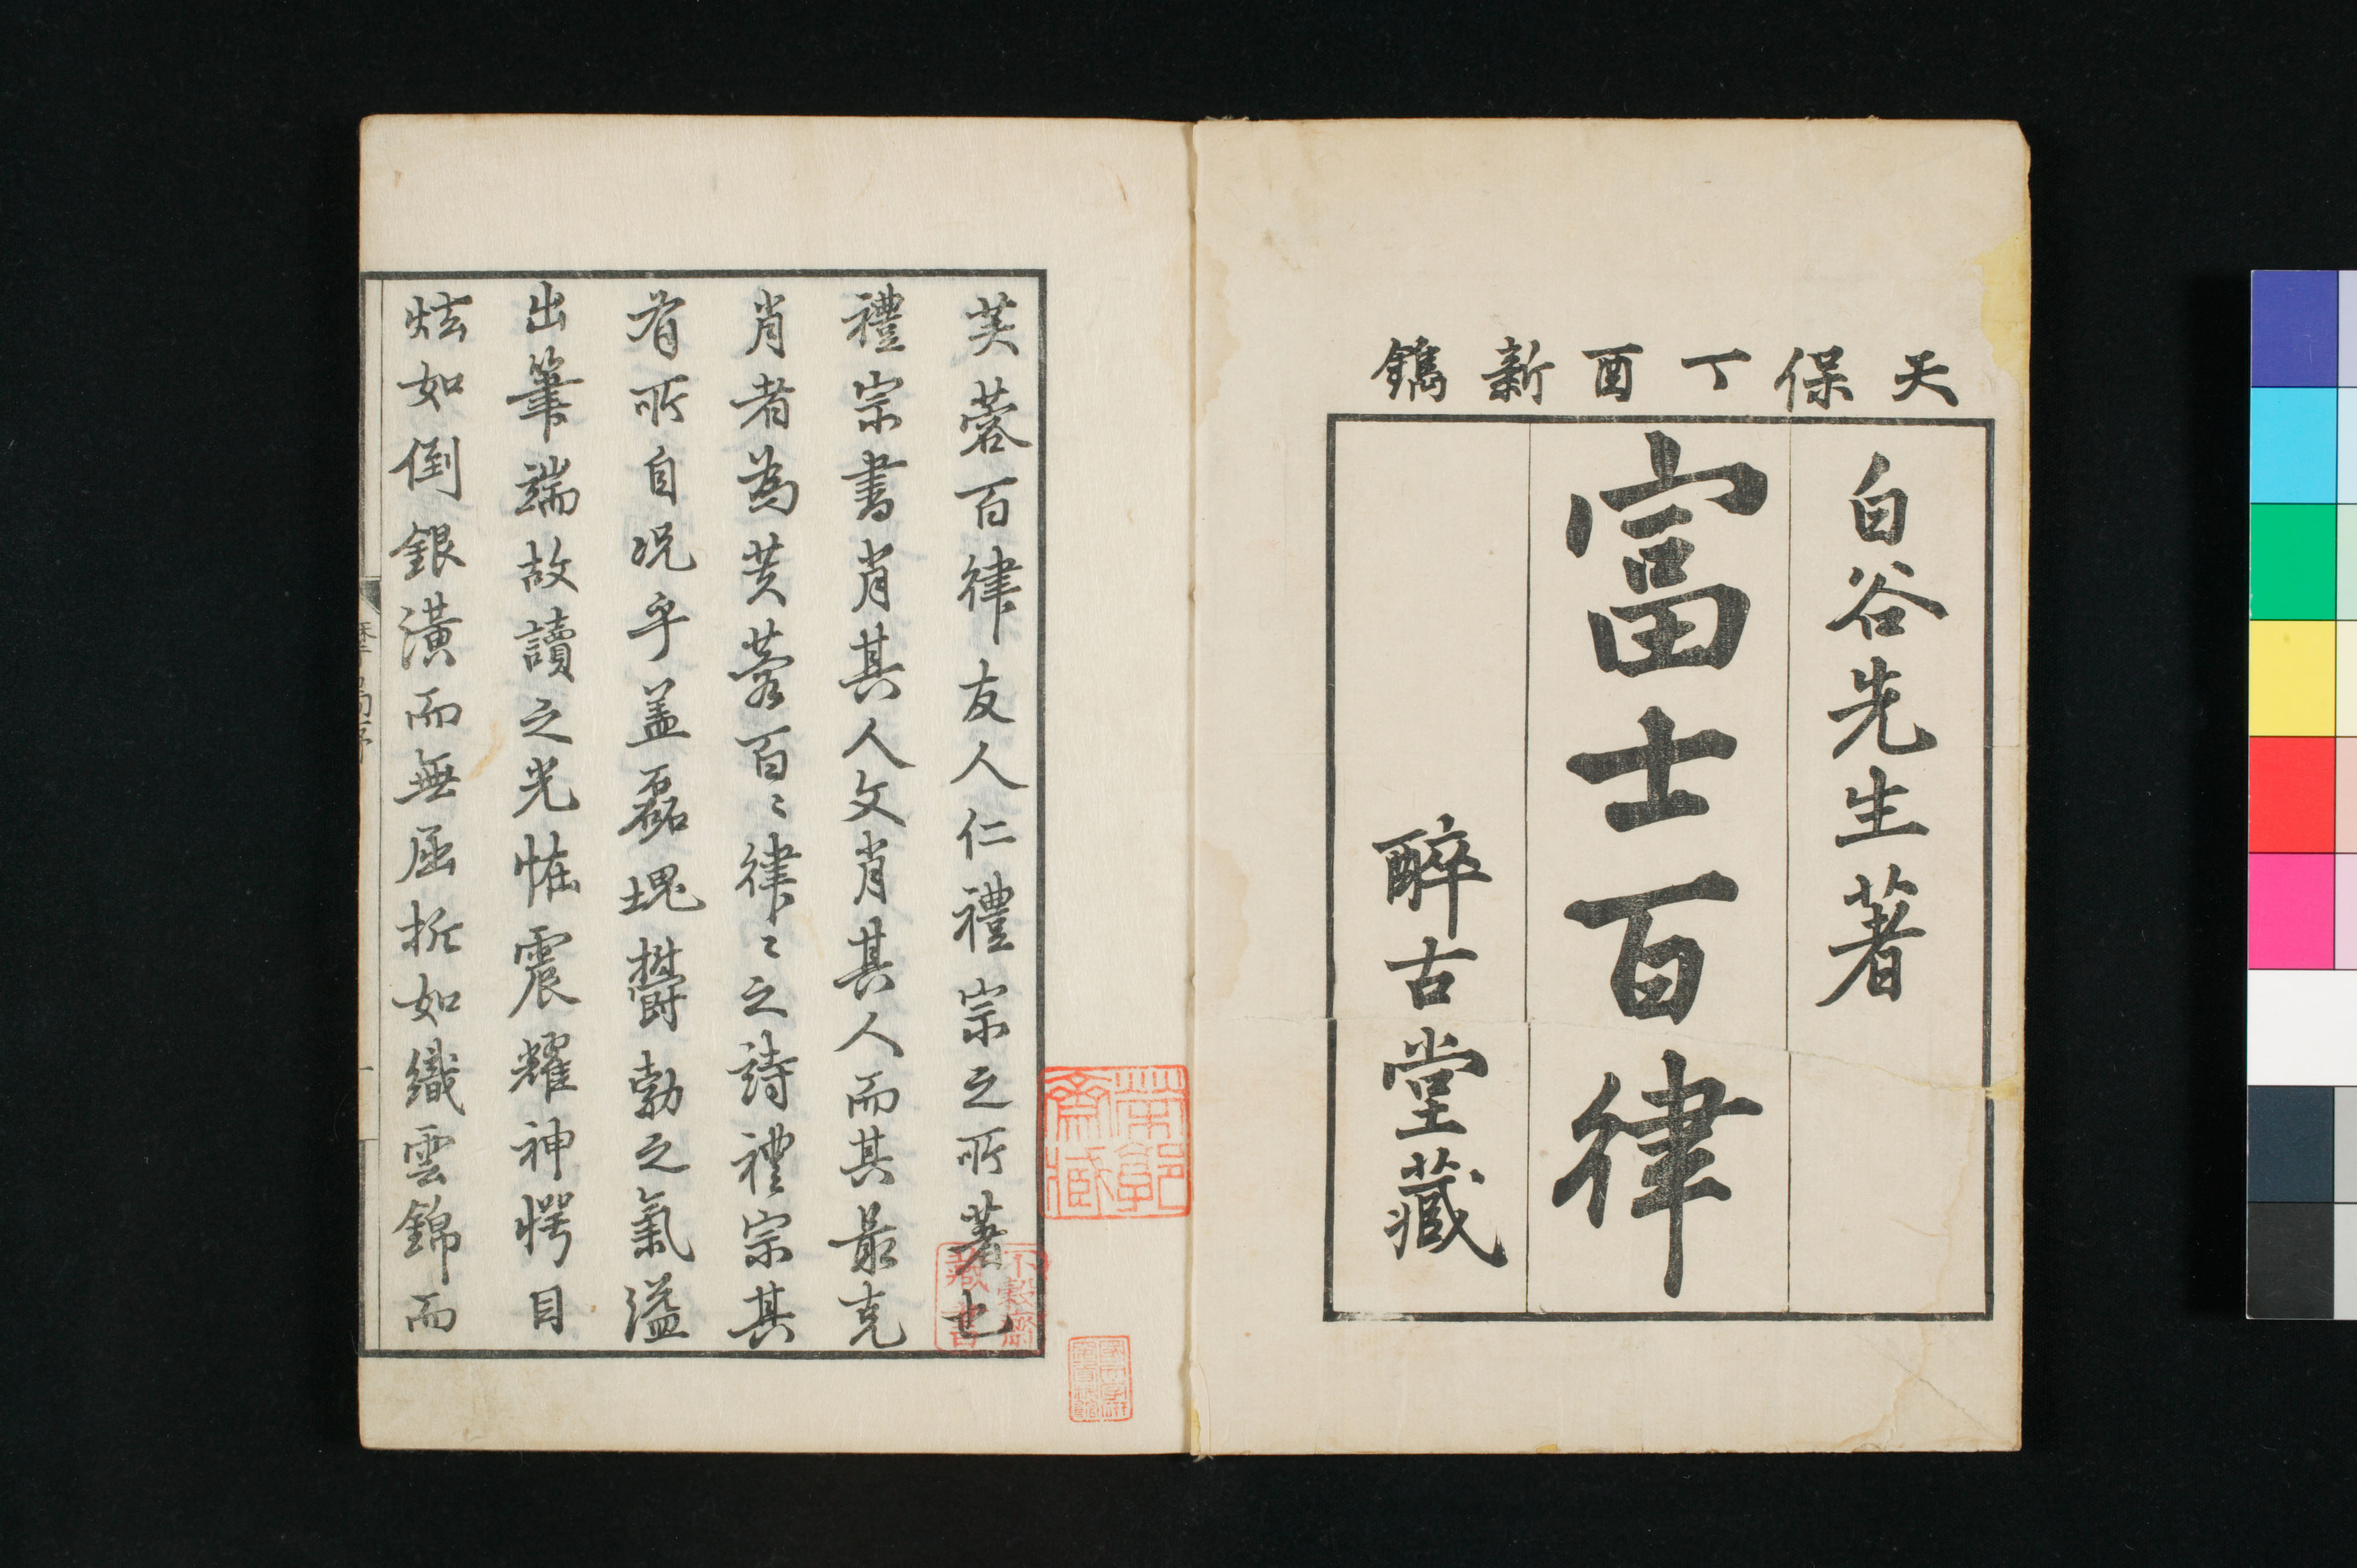 天保丁酉新鐫
白谷先生著
富士百律
醉古堂藏
芙蓉百律友人仁禮宗之所著也
禮宗書肖其人文肖其人而其最克
肖者為芙蓉百〻律〻之詩禮宗其
有所自况乎盖磊塊欝勃之氣溢
出筆端故讀之光恠震耀神愕目
炫如倒銀潢而無屈折如織雲錦而
不穀齋藏書